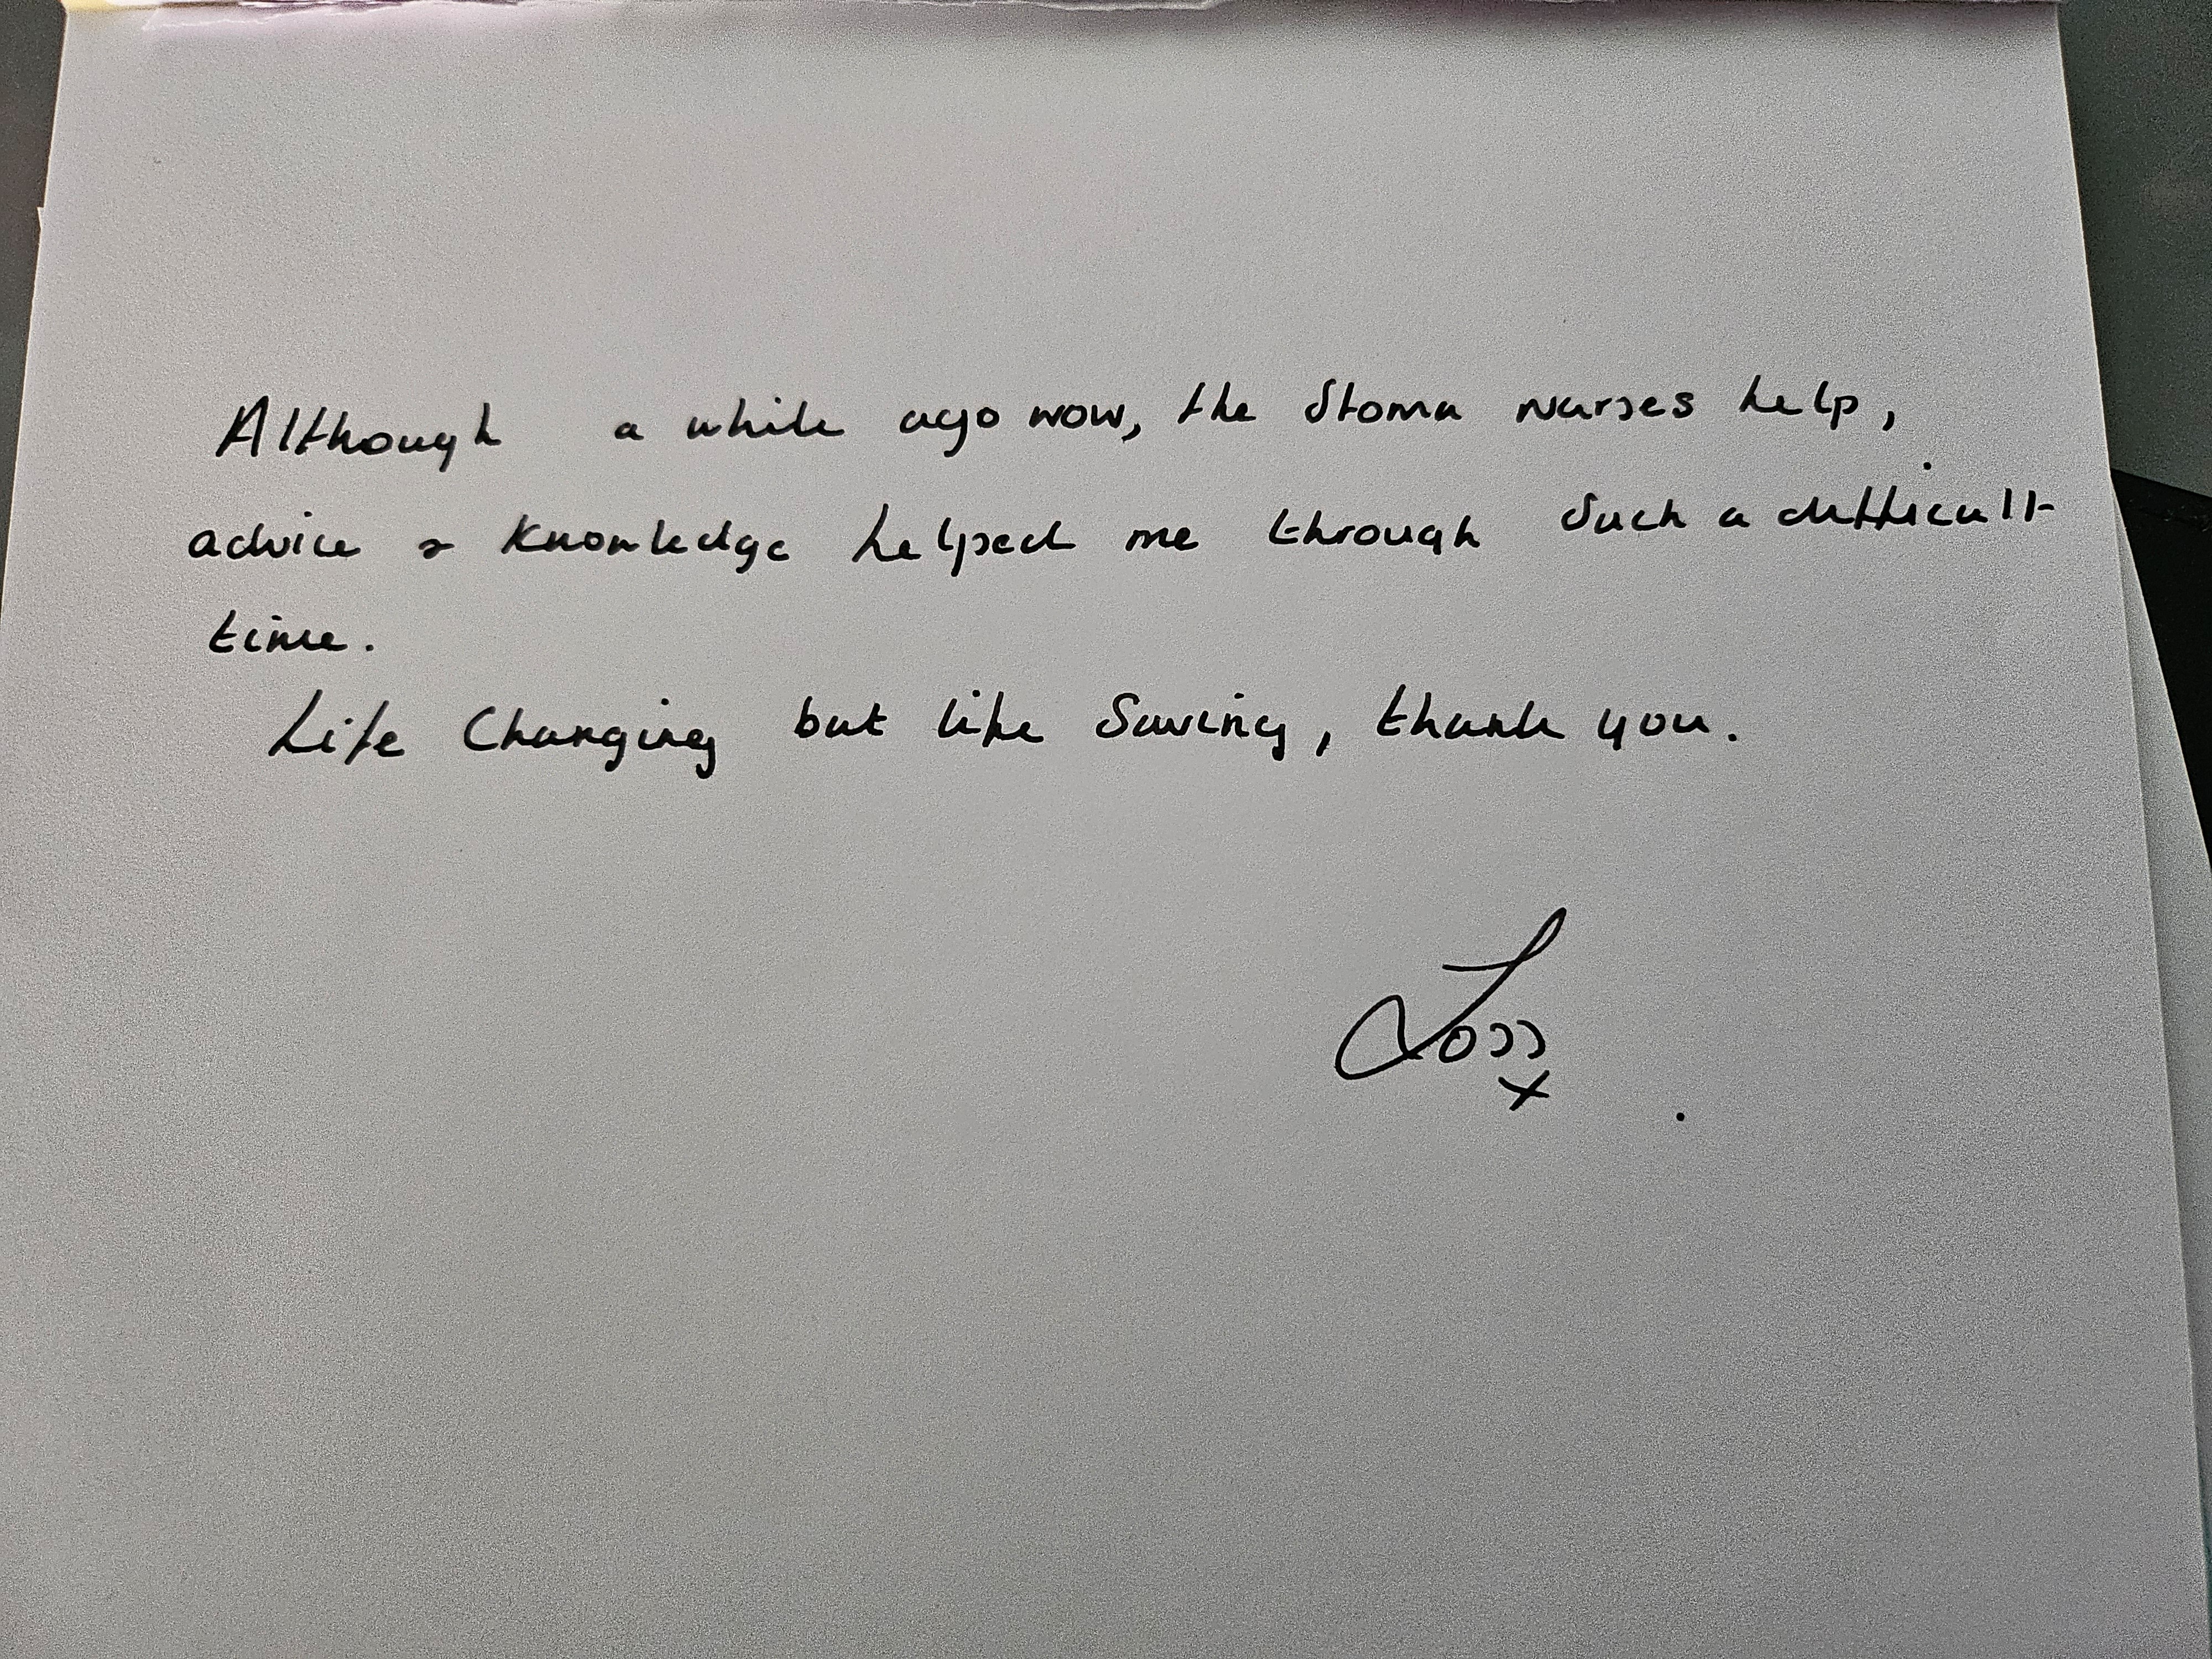 Although a while ago now, the Stoma nurses help,
advice & knowledge helped me through such a difficult
time.
Life Changing but life Saving, thank you.
x